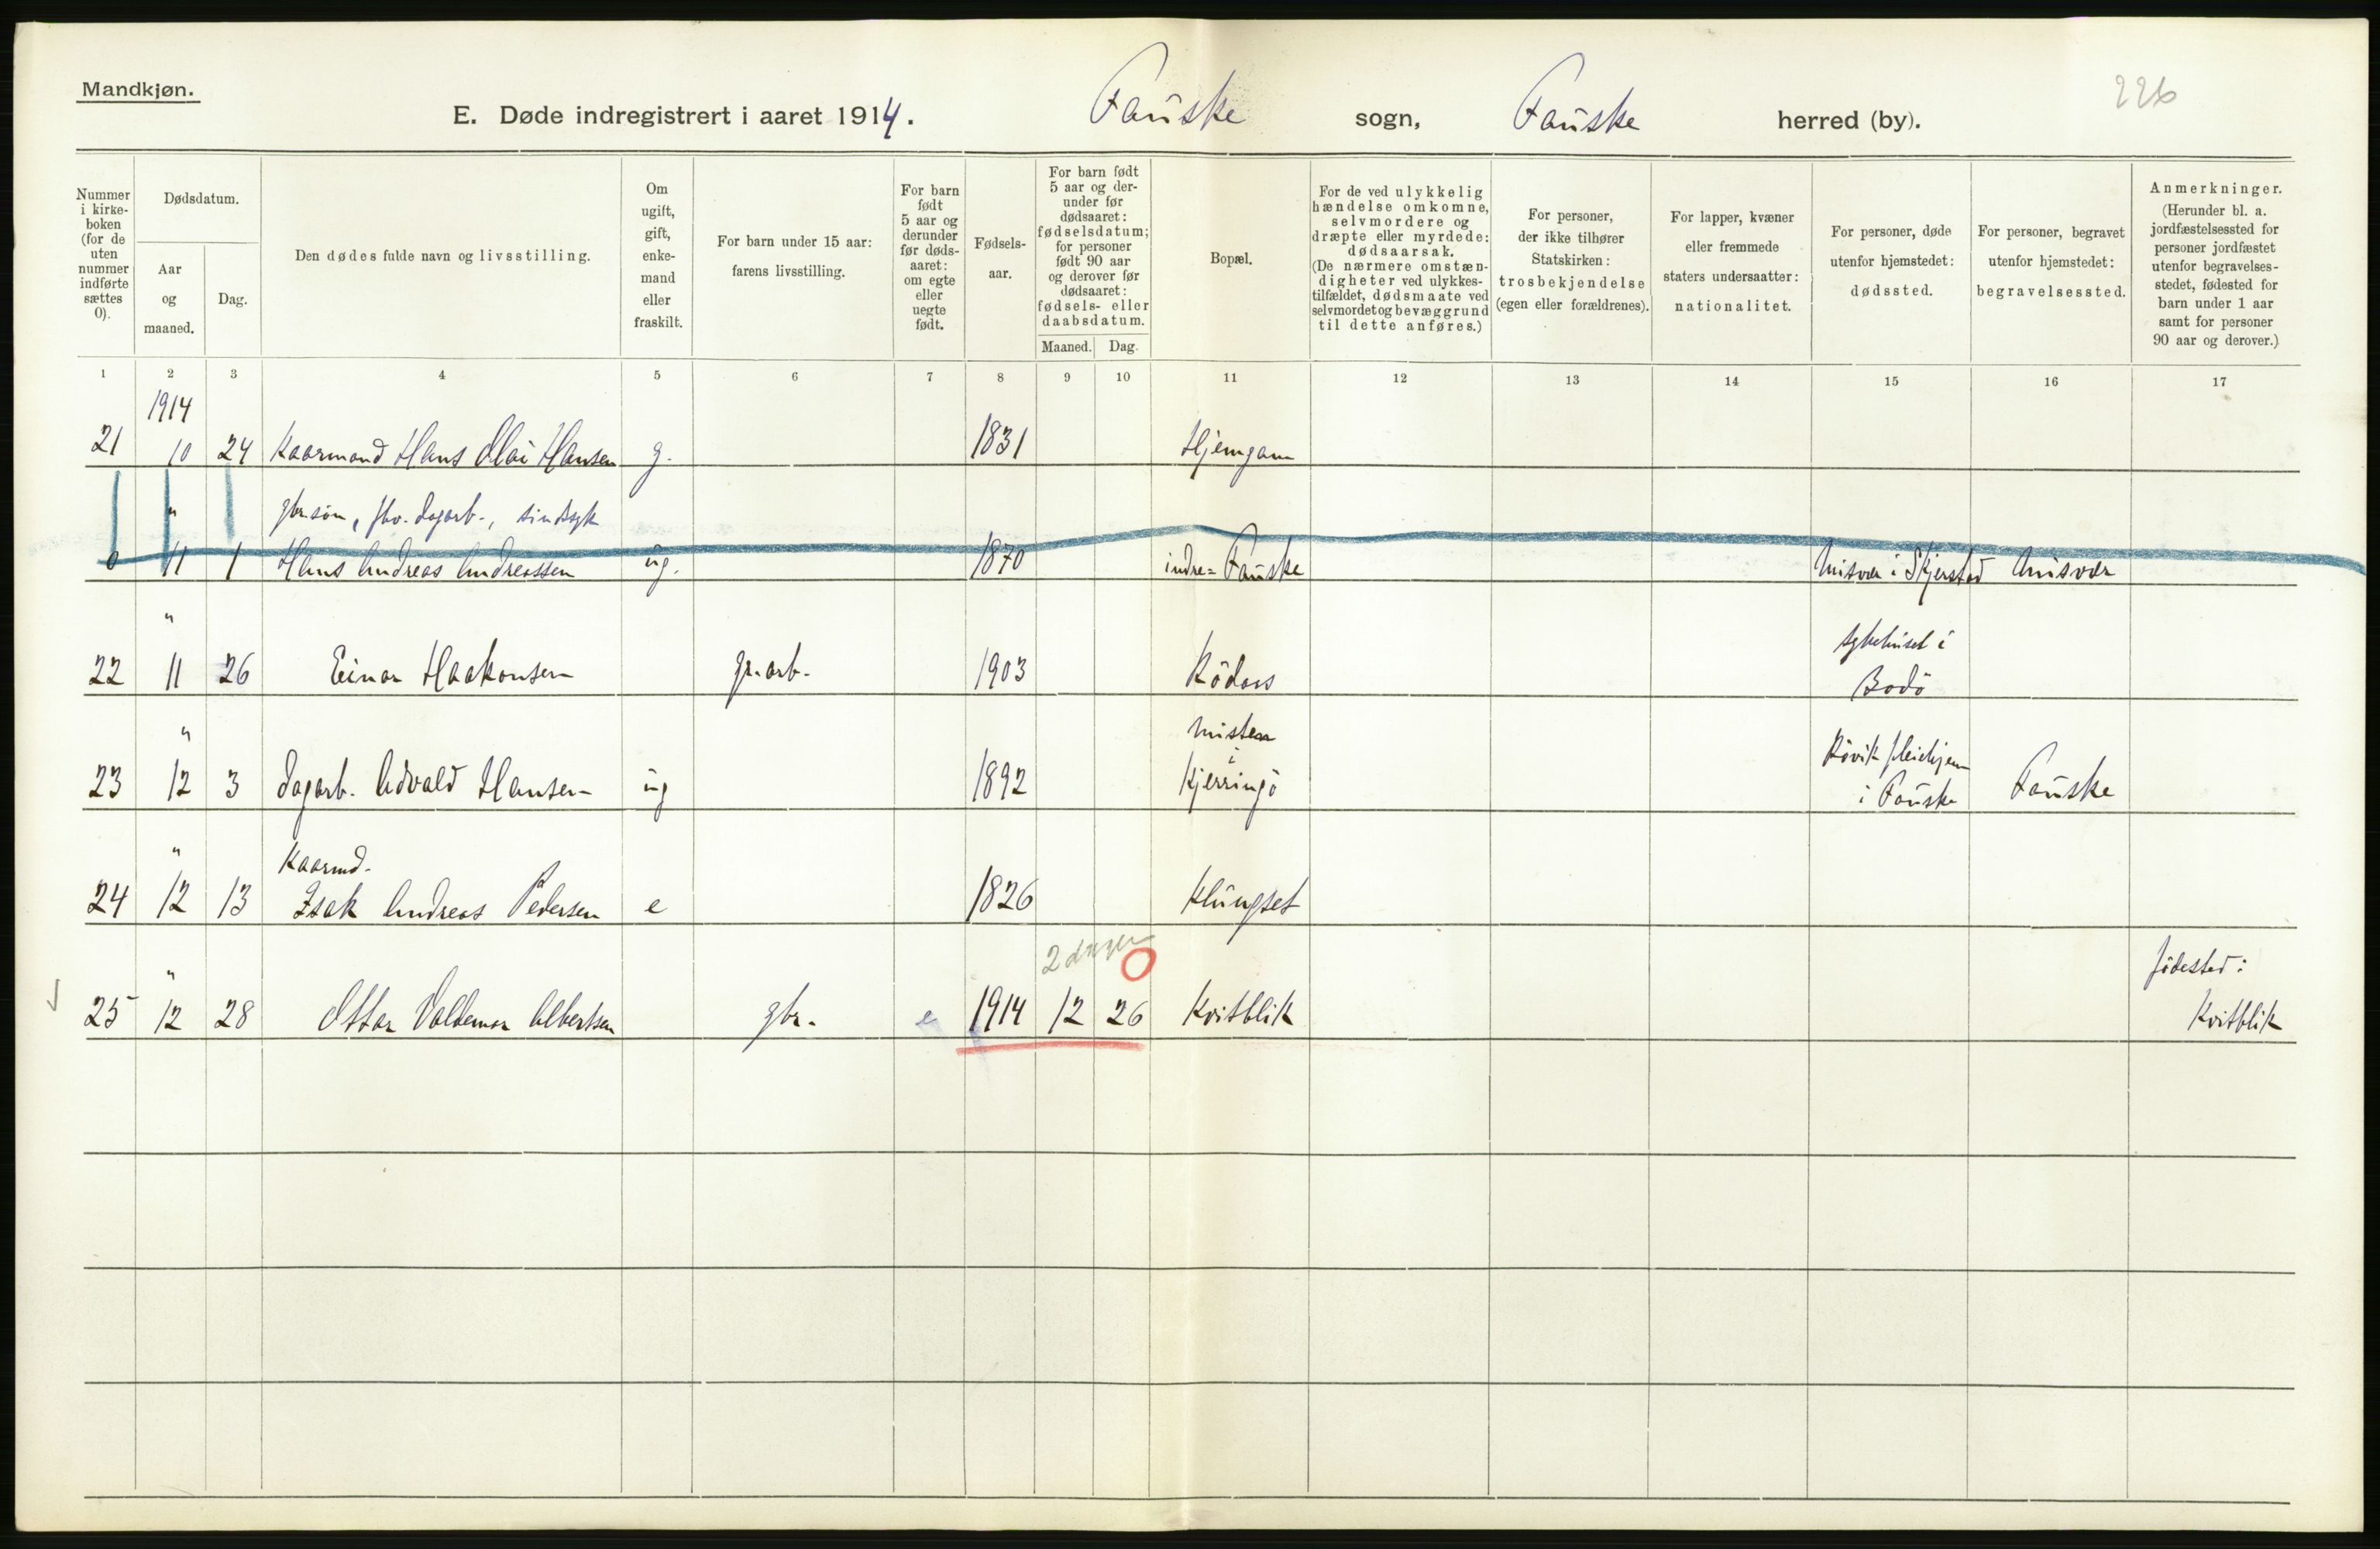 Mandkjøn.
E. Døde indregistrert i aaret 1914. Fauske sogn, Fauske herred (by).
226
Nummer i kirke-boken (for de uten nummer indførte sættes 0).
Dødsdatum.
Aar og maaned.
Dag.
Den dødes fulde navn og livsstilling.
Om ugift, gift, enke-mand eller fraskilt.
For barn under 15 aar: farens livsstilling.
For barn født 5 aar og derunder før døds-aaret: om egte eller uegte født.
Fødsels-aar.
For barn født 5 aar og der-under før dødsaaret: fødselsdatum; for personer født 90 aar og derover før dødsaaret: fødsels- eller daabsdatum.
Maaned. Dag.
Bopæl.
For de ved ulykkelig hændelse omkomne, selvmordere og dræpte eller myrdede: dødsaarsak. (De nærmere omstæn-digheter ved ulykkes-tilfældet, dødsmaate ved selvmordet og bevæggrund til dette anføres.)
For personer, der ikke tilhører Statskirken: trosbekjendelse (egen eller forældrenes).
For lapper, kvæner eller fremmede staters undersaatter: nationalitet.
For personer, døde utenfor hjemstedet: dødssted.
For personer, begravet utenfor hjemstedet: begravelsessted.
Anmerkninger. (Herunder bl. a. jordfæstelsessted for personer jordfæstet utenfor begravelses-stedet, fødested for barn under 1 aar samt for personer 90 aar og derover.)
1 2 3 4 5 6 7 8 9 10 11 12 13 14 15 16 17
1914
21 10 24 Kaarmand Hans Olai Hansen g. 1831 Hjemgam
" gbr.søn, fhv. dagarb., sindssyk
0 11 1 Hans Andreas Andreassen ug. 1870 indre= Fauske Misvær i Skjerstad Misvær
" sykehuset i
22 11 26 Einar Haakonsen gr.arb. 1903 Rödaas Bodö
" Misten i Rövik pleiehjem
23 12 3 dagarb. Advald Hansen ug 1892 Kjerringö i Fauske Fauske
" Kaarmd.
24 12 13 Isak Andreas Pedersen e 1826 Klungset
" 2 dager födested:
25 12 28 Ottar Valdemar Albertsen gbr. e 1914 12 26 Kvitblik Kvitblik